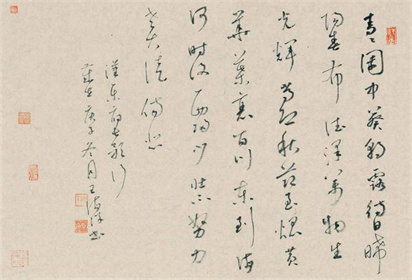 青々園中葵朝露待日晞
陽春布德澤萬物生
光輝常恐秋節至焜黃
華葉衰百川東到海
何時復西歸少壯不努力
老大徒傷悲
漢樂府長歌行
歲在庚子冬月王書